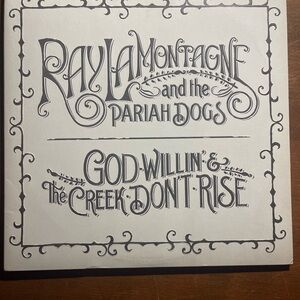 RAY LAMONTAGNE
and the
PARIAH DOGS
GOD WILLIN' &
The CREEK DON'T RISE